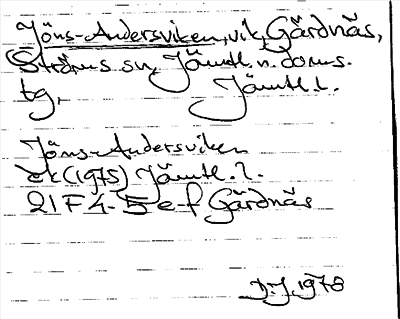 Jöns-Andersviken, vik, Gärdnäs,
Ströms sn, Jämtl. n. doms.
tg, Jämtl. l.
Jöns-Andersviken
ek (1975) Jämtl. l.
21 F 4-5 e-f Gärdnäs
D.J. 1978